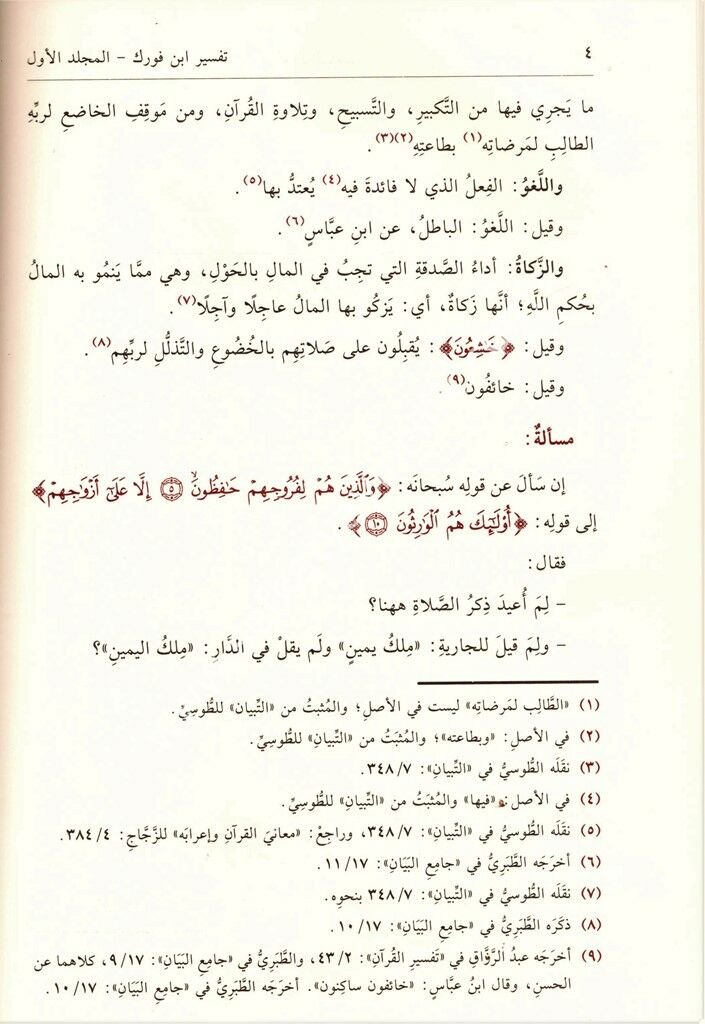 ٤ تفسير ابن فورك – المجلد الأول
ما يَجرِي فيها من التَّكبيرِ، والتَّسبيحِ، وتِلاوةِ القُرآنِ، ومن مَوقِفِ الخاضعِ لربِّهِ
الطالبِ لمَرضاتِه(١) بطاعتِهِ(٢)(٣).
واللَّغوُ: الفِعلُ الذي لا فائدةَ فيه(٤) يُعتدُّ بها(٥).
وقيل: اللَّغوُ: الباطلُ، عن ابنِ عبَّاسٍ(٦).
والزَّكاةُ: أداءُ الصَّدقةِ التي تجِبُ في المالِ بالحَوْلِ، وهي ممَّا يَنمُو به المالُ
بحُكمِ اللَّهِ؛ أنَّها زَكاةٌ، أي: يَزكُو بها المالُ عاجِلًا وآجِلًا(٧).
وقيل: ﴿خَشِعُونَ﴾: يُقبِلُون على صَلاتِهِم بالخُضُوعِ والتَّذلُّلِ لربِّهِم(٨).
وقيل: خائفُون(٩).
مسألةٌ:
إن سَألَ عن قولِه سُبحانَه: ﴿وَٱلَّذِينَ هُمْ لِفُرُوجِهِمْ حَـٰفِظُونَ ۝٥ إِلَّا عَلَىٰٓ أَزْوَٰجِهِمْ﴾
إلى قولِه: ﴿أُوْلَـٰٓئِكَ هُمُ ٱلْوَٰرِثُونَ ۝١٠﴾.
فقال:
– لِمَ أُعيدَ ذِكرُ الصَّلاةِ ههنا؟
– ولِمَ قيلَ للجاريةِ: «مِلكُ يمينٍ» ولَم يقلْ في الدَّارِ: «مِلكُ اليمينِ»؟
(١) «الطَّالِب لمَرضاتِه» ليست في الأصلِ؛ والمُثبتُ من «التِّبيان» للطُّوسِيِّ.
(٢) في الأصل: «وبطاعته»؛ والمُثبَتُ من «التِّبيانِ» للطُّوسِيِّ.
(٣) نقَلَه الطُّوسيُّ في «التِّبيانِ»: ٣٤٨/٧.
(٤) في الأصل: «فيها» والمُثبَتُ من «التِّبيانِ» للطُّوسِيِّ.
(٥) نقَلَه الطُّوسيُّ في «التِّبيانِ»: ٣٤٨/٧، وراجِعْ: «معانيَ القرآنِ وإعرابَه» للزَّجَّاجِ: ٣٨٤/٤.
(٦) أخرَجَه الطَّبَرِيُّ في «جامِعِ البَيَانِ»: ١١/١٧.
(٧) نقَلَه الطُّوسيُّ في «التِّبيانِ»: ٣٤٨/٧ بنحوِه.
(٨) ذكَرَه الطَّبَرِيُّ في «جامِعِ البَيَانِ»: ١٠/١٧.
(٩) أخرَجَه عبدُ الرَّزَّاقِ في «تَفسيرِ القُرآنِ»: ٤٣/٢، والطَّبَرِيُّ في «جامِعِ البَيَانِ»: ٩/١٧، كلاهما عن
الحسنِ، وقال ابنُ عبَّاسٍ: «خائفون ساكِنون». أخرَجَه الطَّبَرِيُّ في «جامِعِ البَيَانِ»: ١٠/١٧.